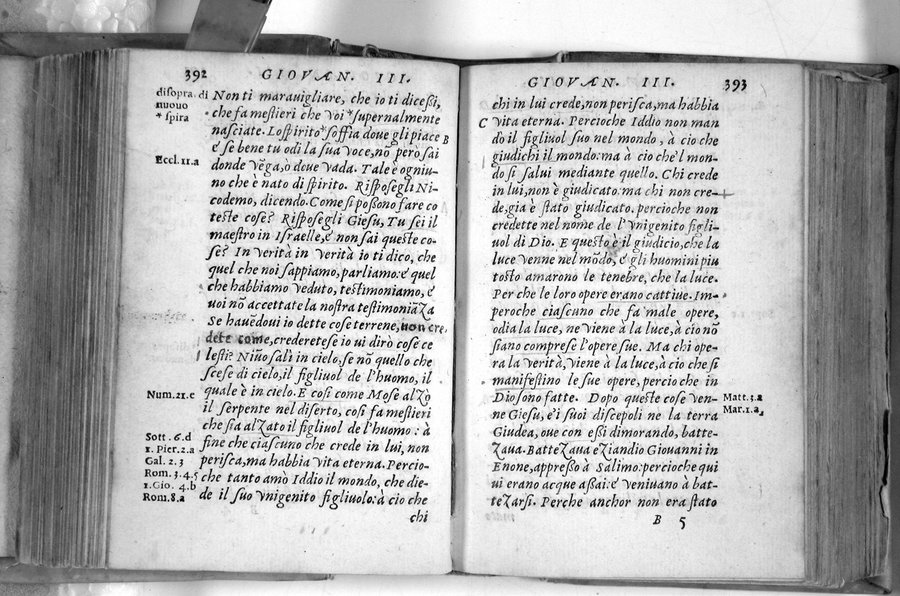 392 GIOVAN. III.
disopra. di
nuouo
* spira
Eccl. 11.a
Num. 21. c
Sott. 6. d
1. Pier. 2. a
Gal. 2. 3
Rom. 3. 4. 5
1. Gio. 4. b
Rom. 8. a
Non ti marauigliare, che io ti dicessi,
che fa mestieri che voi * supernalmente
nasciate. Lo spirito * soffia doue gli piace B
é se bene tu odi la sua voce, nõ però sai
donde vẽga, ò doue vada. Tale è ogniu-
no che è nato di spirito. Risposegli Ni-
codemo, dicendo. Come si possono fare co
teste cose? Risposegli Giesu, Tu sei il
maestro in Israelle, é non sai queste co-
se? In verità in verità io ti dico, che
quel che noi sappiamo, parliamo: é quel
che habbiamo veduto, testimoniamo, é
uoi nõ accettate la nostra testimoniãza
Se hauẽdoui io dette cose terrene, non cre
dete come, crederete se io ui dirò cose ce
lesti? Niũo salì in cielo, se nõ quello che
scese di cielo, il figliuol de l'huomo, il
quale è in cielo. E cosi come Mose alzò
il serpente nel diserto, cosi fa mestieri
che sia alzato il figliuol de l'huomo: à
fine che ciascuno che crede in lui, non
perisca, ma habbia vita eterna. Percio-
che tanto amo Iddio il mondo, che die-
de il suo vnigenito figliuolo: à cio che
chi
GIOVAN. III. 393
chi in lui crede, non perisca, ma habbia
C vita eterna. Percioche Iddio non man
dò il figliuol suo nel mondo, à cio che
giudichi il mondo: ma à cio che'l mon-
do si salui mediante quello. Chi crede
in lui, non è giudicato: ma chi non cre-
de, gia è stato giudicato. percioche non
credette nel nome de l'vnigenito figli-
uol di Dio. E questo è il giudicio, che la
luce venne nel mõdo, é gli huomini piu
tosto amarono le tenebre, che la luce.
Per che le loro opere erano cattiue. Im-
peroche ciascuno che fa male opere,
odia la luce, ne viene à la luce, à cio nõ
siano comprese l'opere sue. Ma chi ope-
ra la verità, viene à la luce, à cio che si
manifestino le sue opere, percio che in
Dio sono fatte. Dopo queste cose ven-
ne Giesu, e'i suoi discepoli ne la terra
Giudea, oue con essi dimorando, batte-
zaua. Battezaua eziandio Giouanni in
Enone, appresso à Salimo: percioche qui
ui erano acque assai: é veniuano à bat-
tezarsi. Perche anchor non era stato
Matt. 3. a
Mar. 1. a
B 5